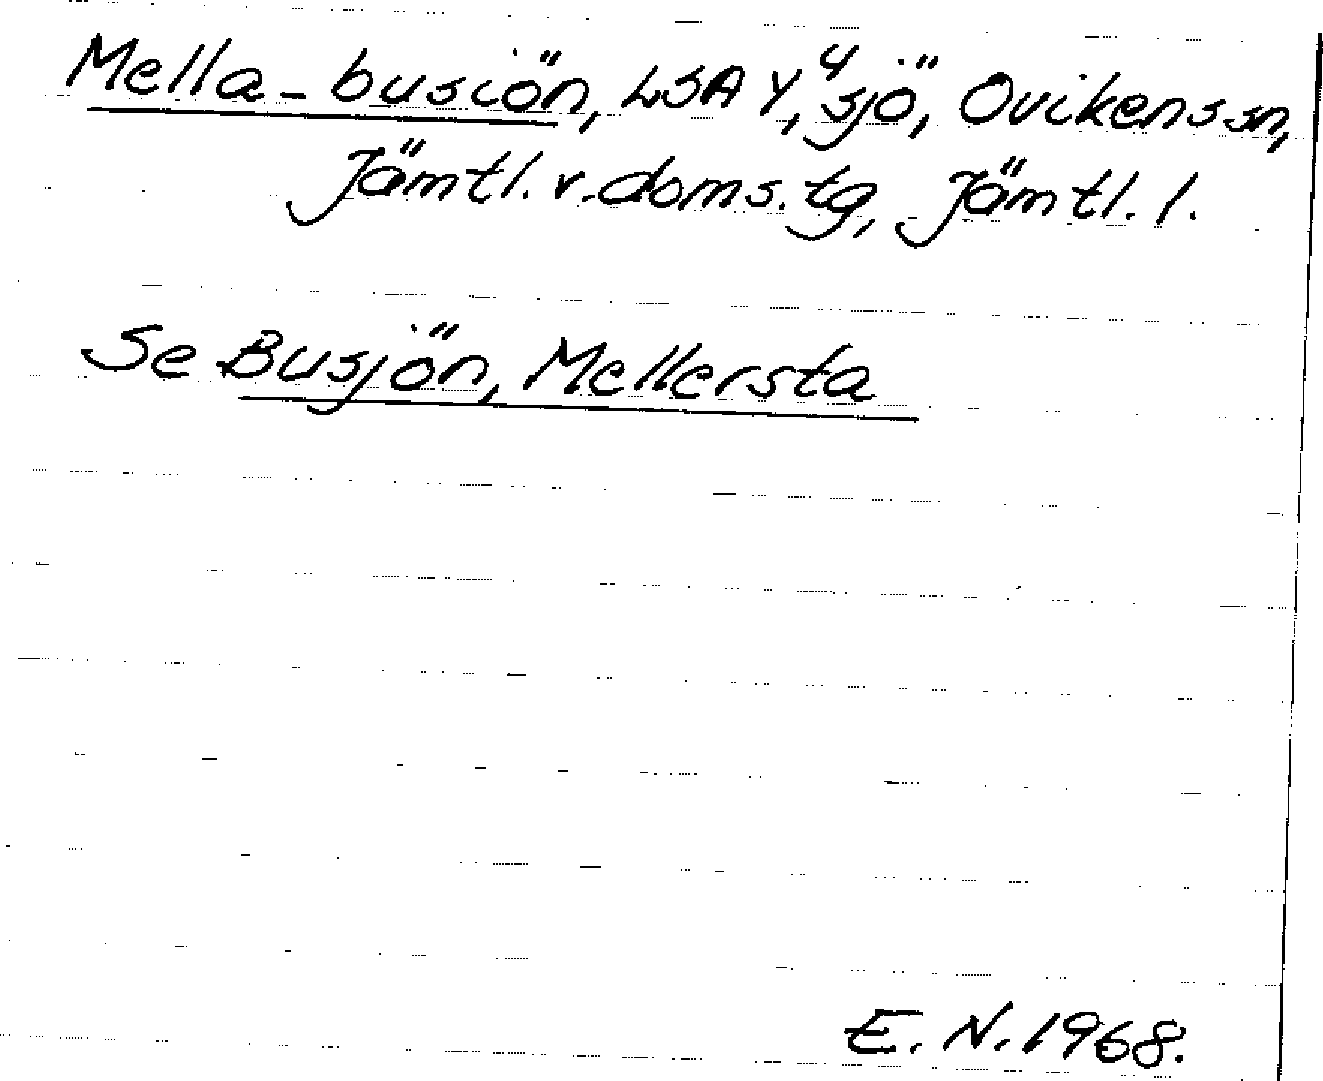 Mella-busiön, LSA Y, 4 sjö, Ovikens sn,
Jämtl. v. doms. tg, Jämtl. l.
Se Busjön, Mellersta
E. N. 1968.